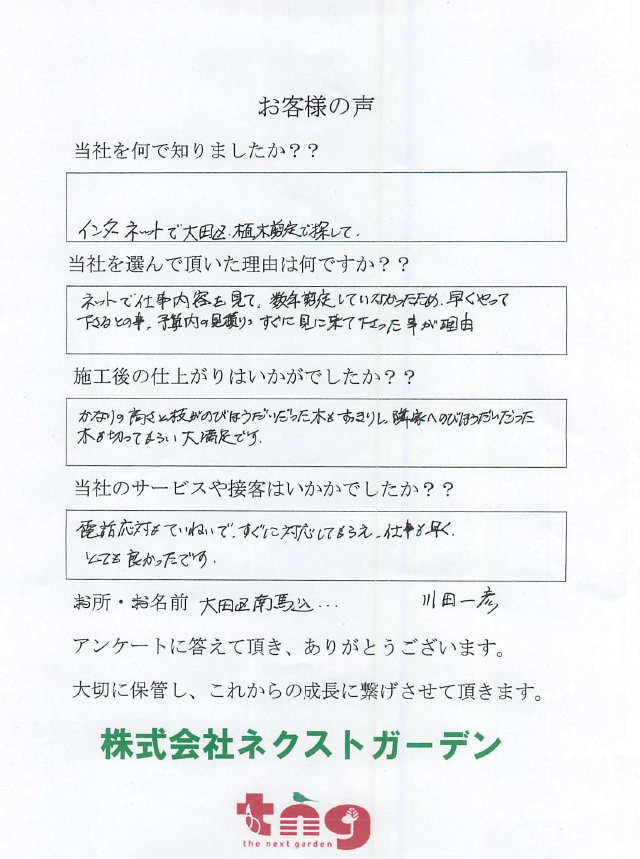 お客様の声
当社を何で知りましたか？？
インターネットで大田区.植木剪定で探して.
当社を選んで頂いた理由は何ですか？？
ネットで仕事内容を見て、数年剪定していなかったため、早くやって
下さるとの事、予算内の見積り、すぐに見に来て下さった事が理由
施工後の仕上がりはいかがでしたか？？
かなりの高さと枝がのびほうだいだった木もすっきりし、隣家へのびほうだいだった
木も切ってもらい大満足です.
当社のサービスや接客はいかかでしたか？？
電話応対もていねいで、すぐに対応してもらえ、仕事も早く.
とても良かったです.
お所・お名前 大田区南馬込... 川田一彦
アンケートに答えて頂き、ありがとうございます。
大切に保管し、これからの成長に繋げさせて頂きます。
株式会社ネクストガーデン
tng
the next garden